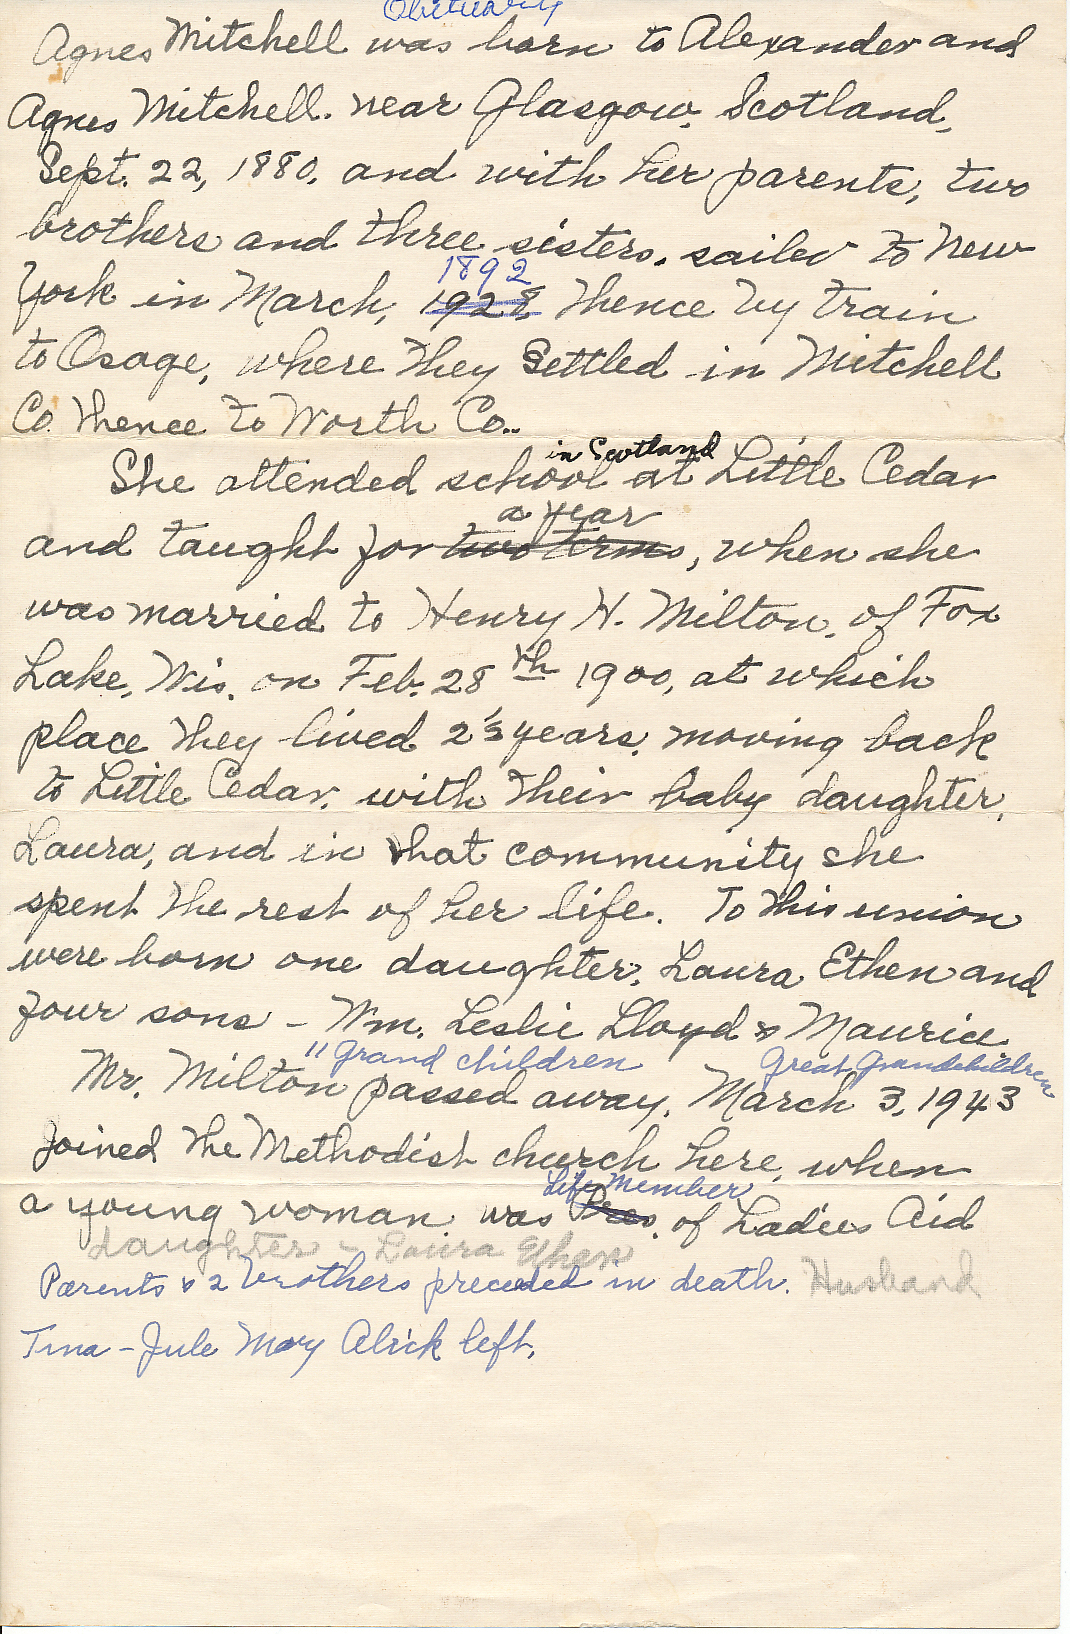 Obituary
Agnes Mitchell was born to Alexander and
Agnes Mitchell. near Glasgow, Scotland,
Sept. 22, 1880, and with her parents, two
brothers and three sisters. sailed to New
1892
York in March, 1928, thence by train
to Osage, where they settled in Mitchell
Co. thence to Worth Co..
in Scotland
She attended school at Little Cedar
a year
and taught for two terms, when she
was married to Henry H. Milton, of Fox
Lake, Wis. on Feb. 28th 1900, at which
place they lived 2½ years, moving back
to Little Cedar, with their baby daughter,
Laura, and in that community she
spent the rest of her life. To this union
were born one daughter, Laura Ethen and
four sons - Wm. Leslie Lloyd & Maurice
11 Grand children Great Grandchildren
Mr. Milton passed away, March 3, 1943
Joined the Methodist church here, when
Life Member
a young woman was Pres. of Ladies Aid
daughter - Laura Ethen
Parents & 2 brothers preceded in death. Husband
Tina - Jule Mary Alrick left.